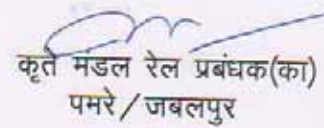 कृते मंडल रेल प्रबंधक(का)
पमरे/जबलपुर